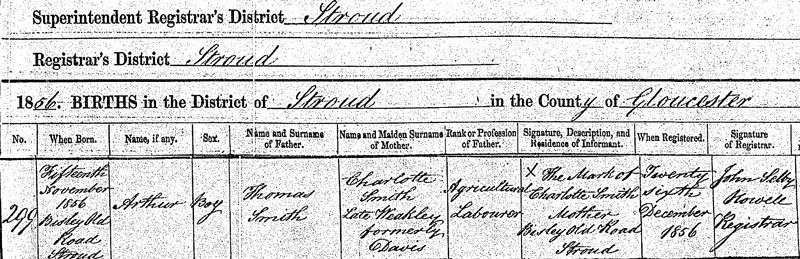 Superintendent Registrar's District Stroud
Registrar's District Stroud
1856. BIRTHS in the District of Stroud in the County of Gloucester
No.
When Born.
Name, if any.
Sex.
Name and Surname
of Father.
Name and Maiden Surname
of Mother.
Rank or Profession
of Father.
Signature, Description, and
Residence of Informant.
When Registered.
Signature
of Registrar.
299
Fifteenth
November
1856
Bisley Old
Road
Stroud
Arthur
Boy
Thomas
Smith
Charlotte
Smith
Late Weakley
formerly
Davis
Agricultural
Labourer
X The Mark of
Charlotte Smith
Mother
Bisley Old Road
Stroud
Twenty
sixth
December
1856
John Selby
Howell
Registrar